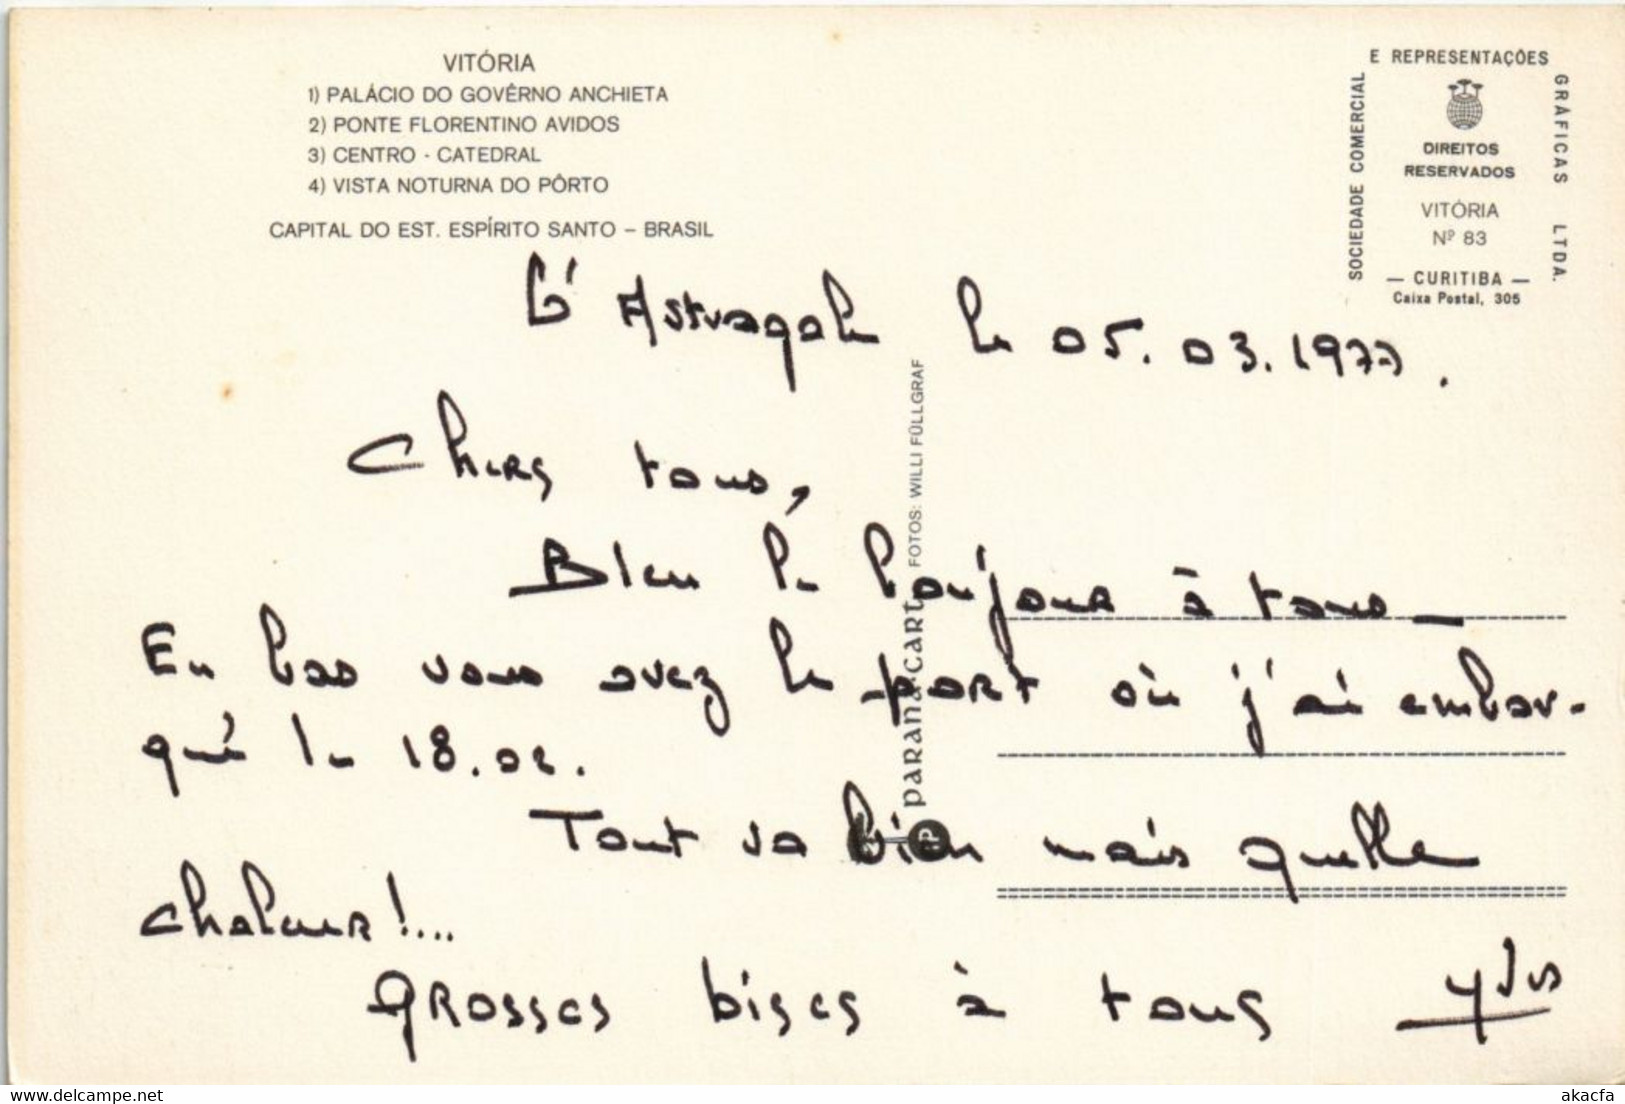 VITÓRIA
1) PALÁCIO DO GOVÊRNO ANCHIETA
2) PONTE FLORENTINO AVIDOS
3) CENTRO - CATEDRAL
4) VISTA NOTURNA DO PÔRTO
CAPITAL DO EST. ESPÍRITO SANTO – BRASIL
SOCIEDADE COMERCIAL
E REPRESENTAÇÕES
GRÁFICAS LTDA.
DIREITOS
RESERVADOS
VITÓRIA
Nº 83
— CURITIBA —
Caixa Postal, 305
PARANÁ CART
FOTOS: WILLI FÜLLGRAF
L'Astragale le 05.03.1977.
Chers tous,
Bien le bonjour à tous —
En bas vous avez le port où j'ai embar-
qué le 18.02.
Tout va bien mais quelle
chaleur !...
Grosses bises à tous Yves
www.delcampe.net
akacfa